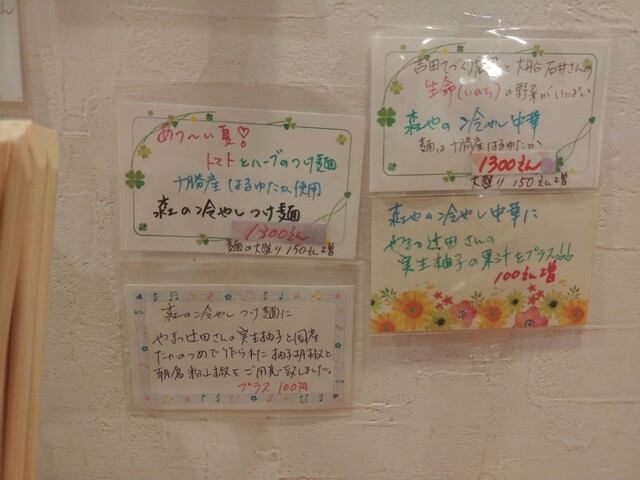 あつ〜い夏!
トマトとハーブのつけ麺
十勝産 はるゆたか使用
森の冷やしつけ麺
1300えん
麺の大盛り 150えん増
森の冷やしつけ麺に
やまつ辻田さんの実生柚子と国産
たかのつめで作られた柚子胡椒と
朝倉粉山椒をご用意致しました。
プラス 100円
吉田てづくり農園と大船石井さんの
生命(いのち)の野菜がいっぱい
森やの冷やし中華
麺は十勝産はるゆたか
1300えん
大盛り 150えん増
森やの冷やし中華に
やまつ辻田さんの
実生柚子の果汁をプラス!!!
100えん増